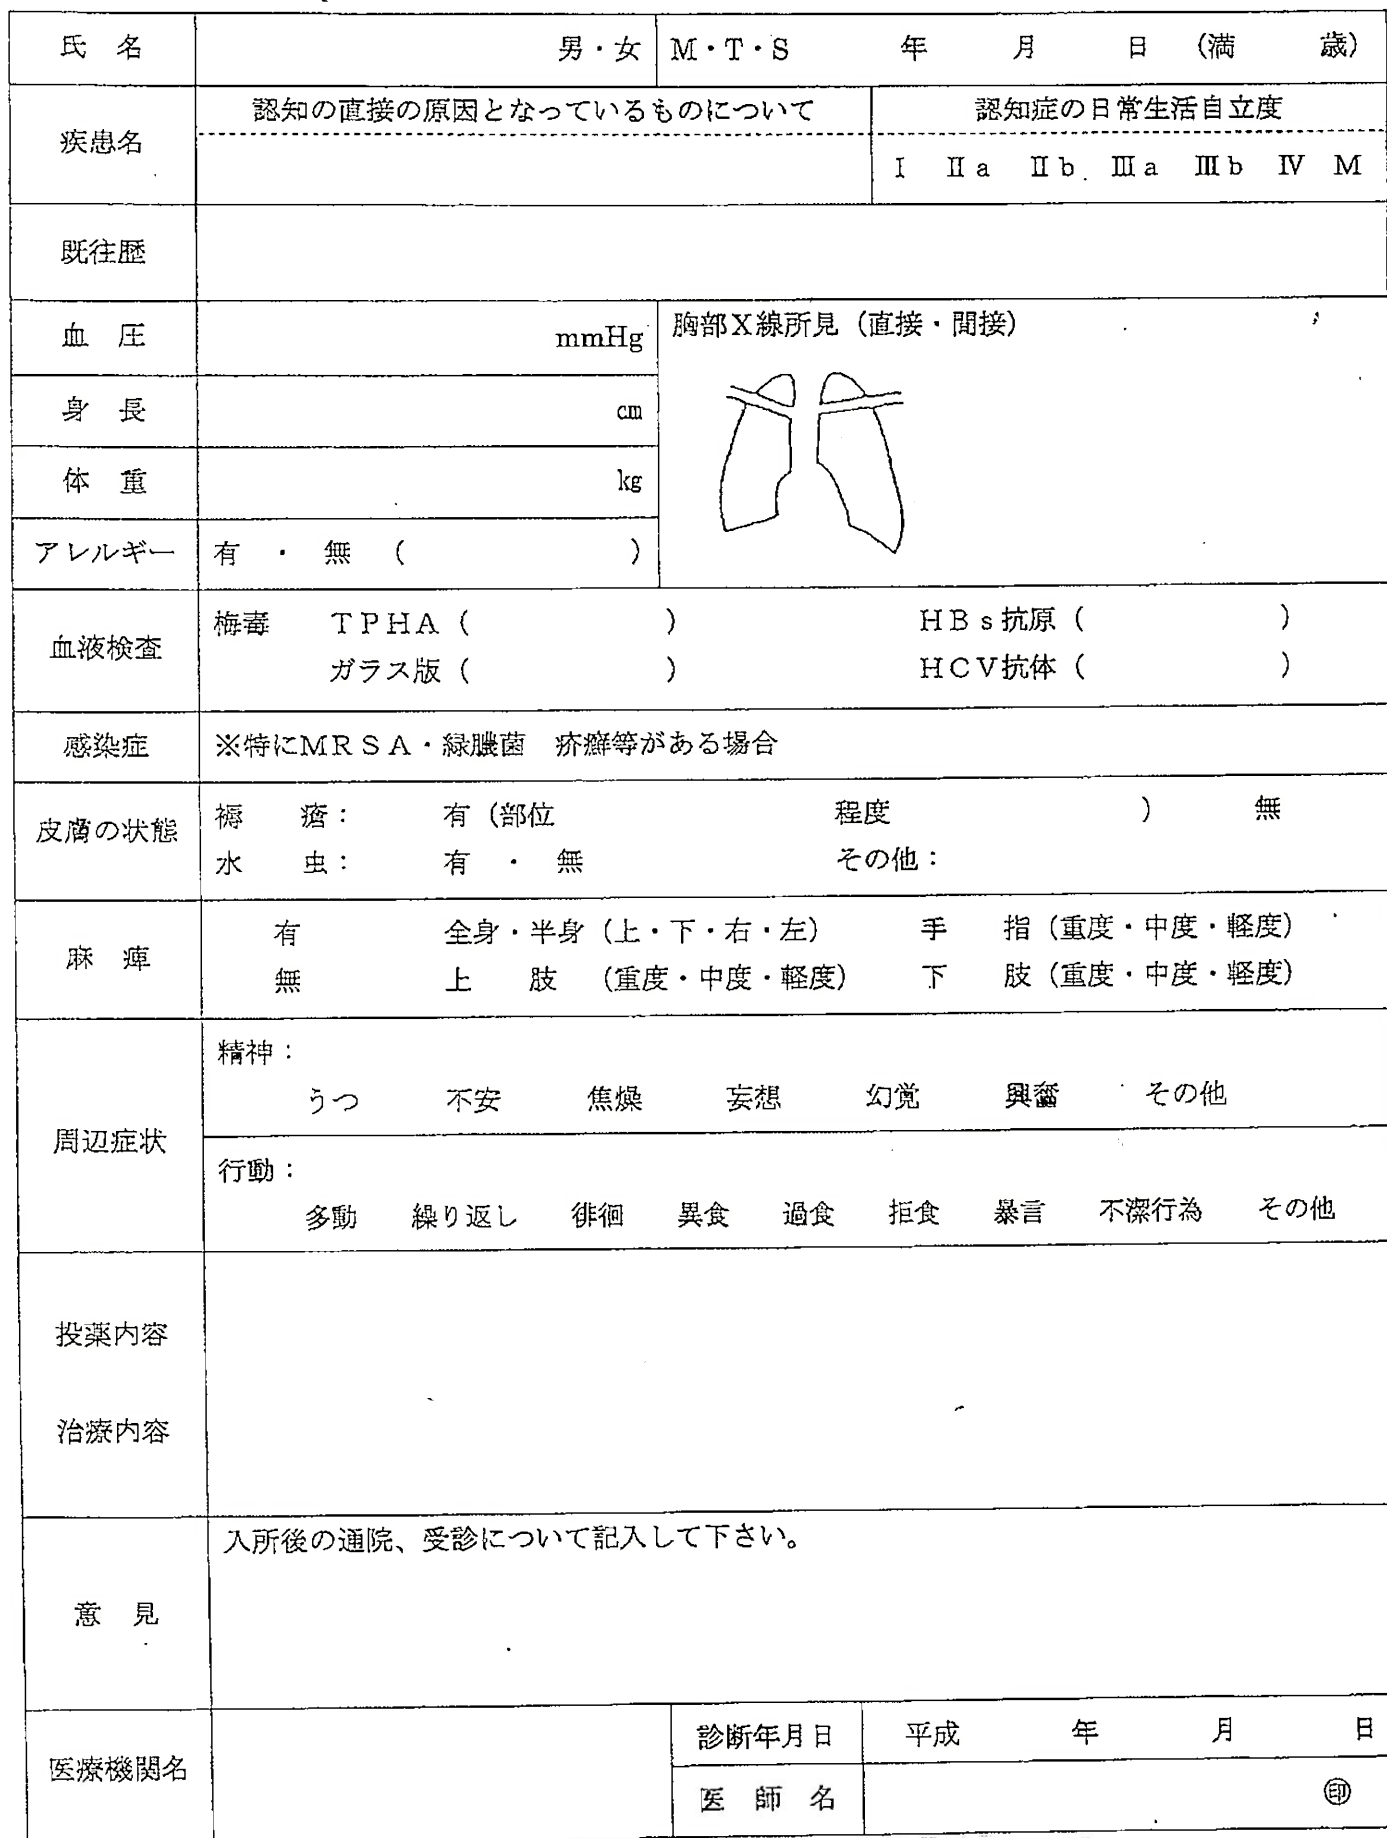 氏 名 男・女 M・T・S 年 月 日 (満 歳)
疾患名 認知の直接の原因となっているものについて 認知症の日常生活自立度
Ⅰ Ⅱa Ⅱb Ⅲa Ⅲb Ⅳ M
既往歴
血 圧 mmHg
胸部X線所見 (直接・間接)
身 長 cm
体 重 kg
アレルギー 有 ・ 無 ( )
血液検査
梅毒 TPHA ( ) HBs抗原 ( )
ガラス版 ( ) HCV抗体 ( )
感染症 ※特にMRSA・緑膿菌 疥癬等がある場合
皮膚の状態
褥 瘡: 有 (部位 程度 ) 無
水 虫: 有 ・ 無 その他:
麻 痺
有 全身・半身 (上・下・右・左) 手 指 (重度・中度・軽度)
無 上 肢 (重度・中度・軽度) 下 肢 (重度・中度・軽度)
周辺症状
精神:
うつ 不安 焦燥 妄想 幻覚 興奮 その他
行動:
多動 繰り返し 徘徊 異食 過食 拒食 暴言 不潔行為 その他
投薬内容
治療内容
意 見
入所後の通院、受診について記入して下さい。
医療機関名
診断年月日 平成 年 月 日
医 師 名 ㊞